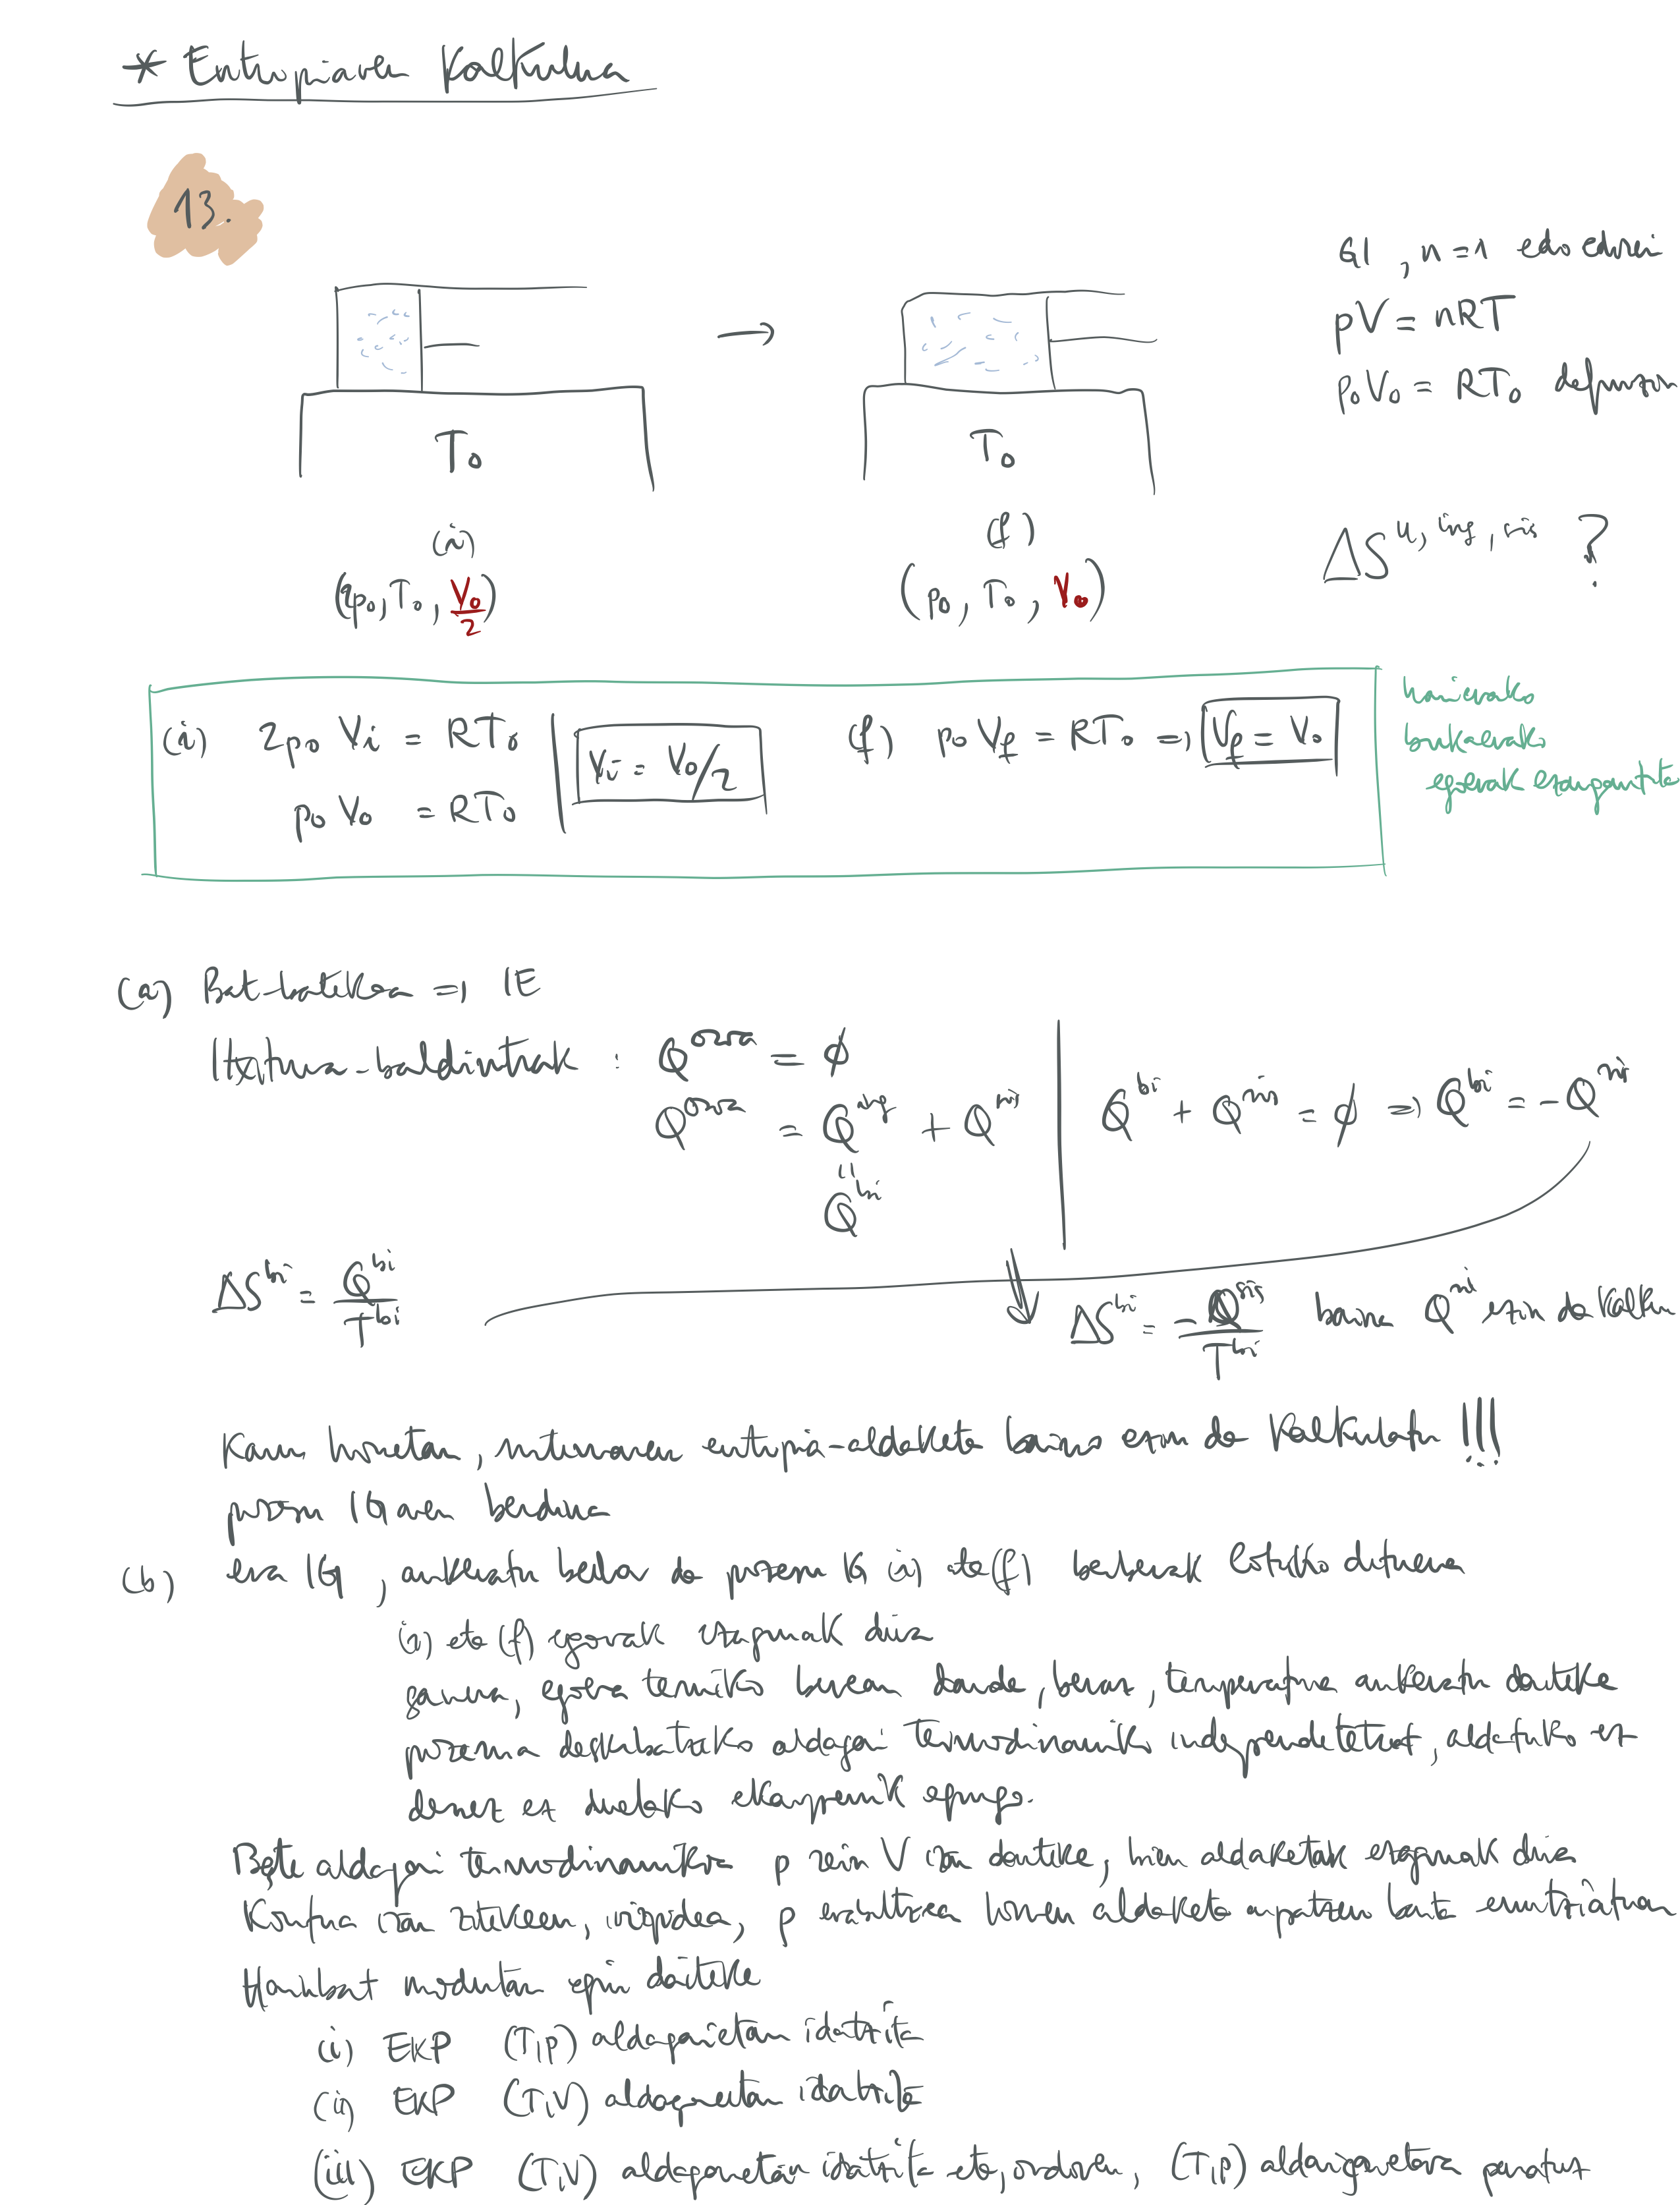 * Entropiaren kalkulua
13.
GI, n=1 edo edozein
pV = nRT
p₀V₀ = RT₀ definizioz
T₀
T₀
(i)
(f)
(2p₀, T₀, V₀/2)
(p₀, T₀, V₀)
ΔS^{u, ing, sis} ?
(i) 2p₀ Vᵢ = RT₀
p₀ V₀ = RT₀
Vᵢ = V₀/2
(f) p₀ V_f = RT₀ => V_f = V₀
hasierako
bukaerako
egoerak ezagunak dira
(a) Bat-batekoa => IE
Itxitura-baldintzak : Q^{osoa} = ϕ
Q^{osoa} = Q^{ing} + Q^{sis}
"
Q^{bi}
Q^{bi} + Q^{sis} = ϕ => Q^{bi} = -Q^{sis}
ΔS^{bi} = Q^{bi}/T^{bi}
ΔS^{bi} = -Q^{sis}/T^{bi} baina Q^{sis} ezin da kalku
Kasu honetan, sistemaren entropia-aldaketa baino ezin da kalkulatu !!!
prozesu IG aren berdina
(b) era IG, aukeratu behar da prozesu IG (i) eta (f) berberak lotuko dituena
(i) eta (f) egoerak ezagunak dira
gainera, egoera termiko berean daude, beraz, tenperatura aukeratu daiteke
prozesua deskribatzeko aldagai termodinamiko independentetzat, aldatuko ez
denez ez duelako ekarpenik egingo.
Beste aldagai termodinamikoa p zein V izan daiteke, bien aldaketak ezagunak dira
Kontua izan zitekeen, p erabiltzea horren aldaketa aipatzen baita enuntziatuan
Hainbat modutan egin daiteke
(i) EKP (T,p) aldagaietan idatzita
(ii) EKP (T,V) aldagaietan idatzita
(iii) EKP (T,V) aldagaietan idatzita eta, ondoren, (T,p) aldagaietara pasatuz